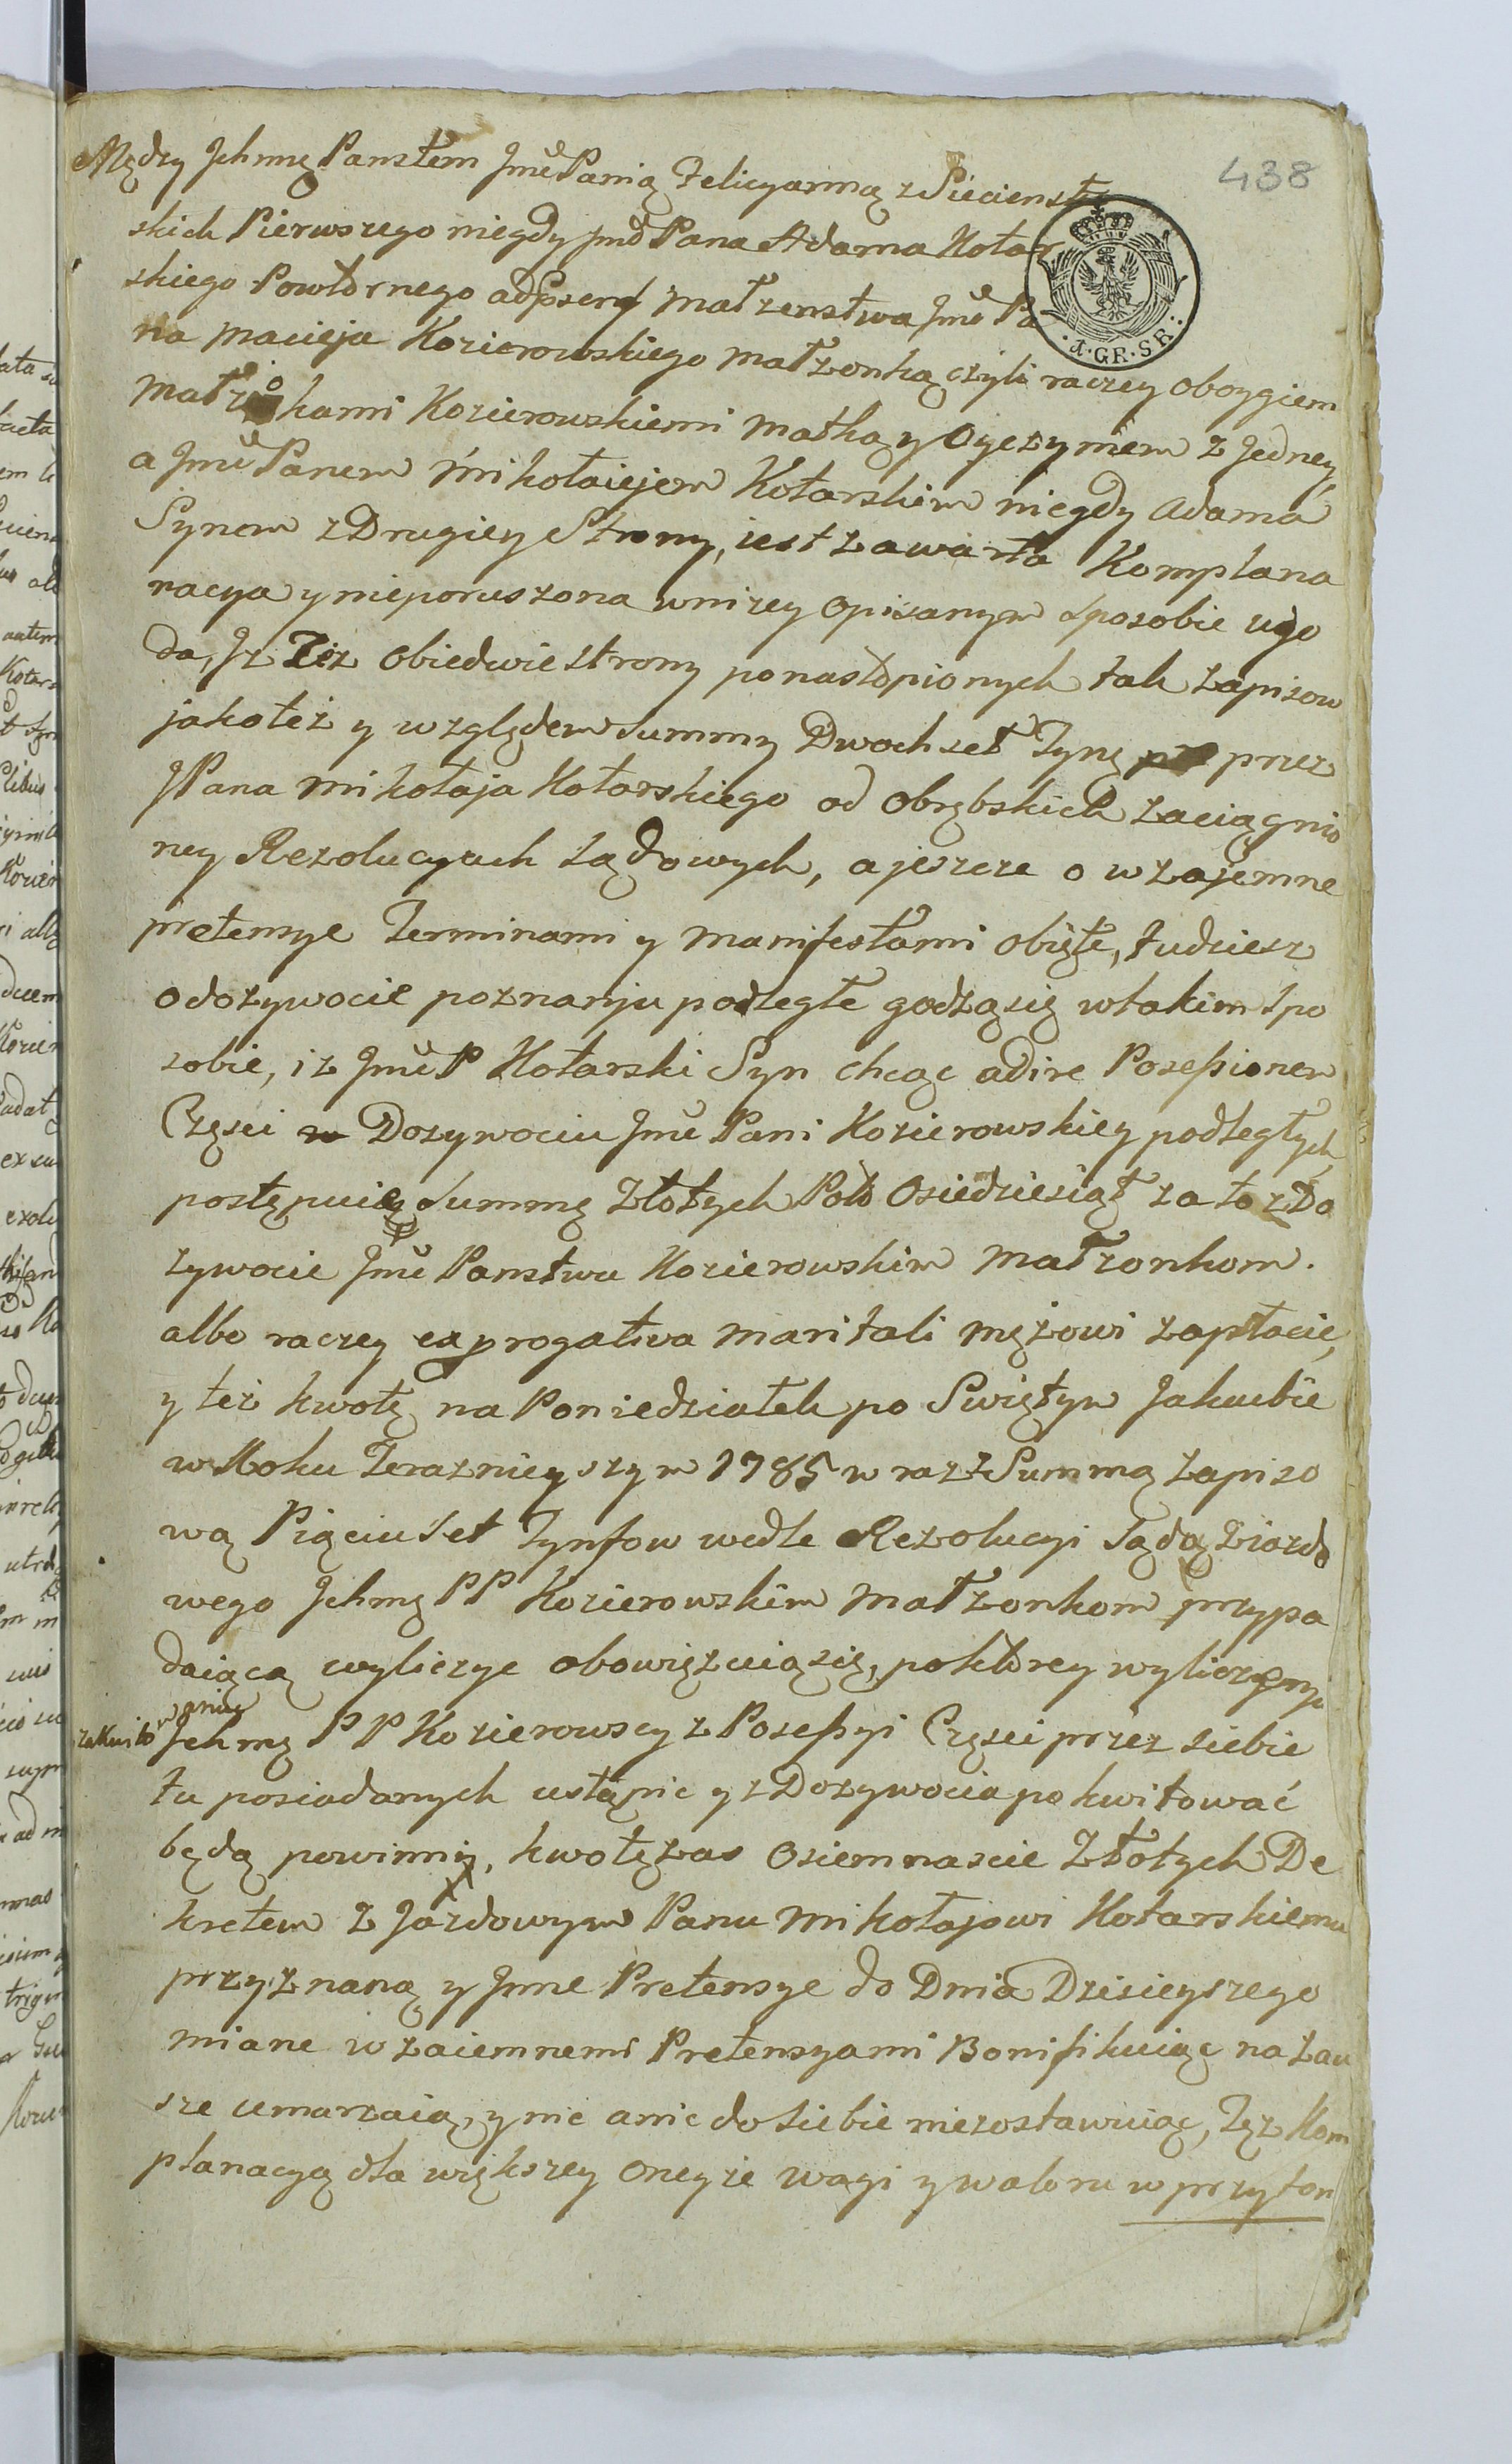 438
Między Jchmę Panstem JmćPanią Felicyanną z Siecienskich
skich Pierwszego niegdy Jmć Pana Adama Kotar
skiego Powtornego adpsens małzenstwa Jmć Pa
na Macieja Kozierowskiego małzonką czyli raczey oboygiem
Małżonkami Kozierowskiemi Matką y Oyczymem z Jedney,
a Jmć Panem Mikołaiejem Kotarskim niegdy Adama
Synem z Drugiey Strony, iest zawarta Komplana
racya y nieporuszona wnizey opisanym sposobie ugo
da, Jz Ciż obiedwie strony ponastopionych tak zapisow
jakoteż y względem Summy Dwochset Tynf przez
JPana Mikołaja Kotarskiego od Obrębskich zaciągnio
ney Rezolucyach Sądowych, a jeszcze o wzajemne
pretensye Terminami y Manifestami obięte, tudziesz
o dozywocie poznanju podległe godzą się w takim spo
sobie, iz Jmć P Kotarski Syn chcąc adire Posessionem
Częsci w Dozywociu Jmć Pani Kozierowskiey podległych
postępuię Summę Złotych Poło Osiedziesiąt za to z Do
zywocie Jmć Panstwu Kozierowskim Małzonkom.
albo raczey ex progatiwa maritali mężowi zapłacic,
y też kwotę na Poniedziałek po Swiętym Jakubie
w Roku Terazniey szym 1785 w raz z Summą zapiso
wą Pięciuset Tynfow wedle Rezolucyi Sądą Ziazdo
wego Jchmę PP Kozierowskim Małzonkom przypa
daiącą wyliczyc obowięzuią się, po ktorey wyliczeniu
zakwito waniu
Jchmę PP Kozierowscy z Posessyi Częsci przez siebie
tu posiadanych ustąpic y z Dozywocia po kwitować
będą powinni, kwotę zas Osiemnascie Złotych De
kretem z Jazdowym Panu Mikołajowi Kotarskiemu
przyznaną y Jnne Pretensye do Dnia Dzisieyszego
miane wzaiemnemi Pretensyami Bonifikuiąc na zaw
sze umarzaią, y nic a nic do siebie niezostawuiąc, Tęz Kom
planacyą dla większey oneyże wagi y waloru w przytom
A·GR·SR: